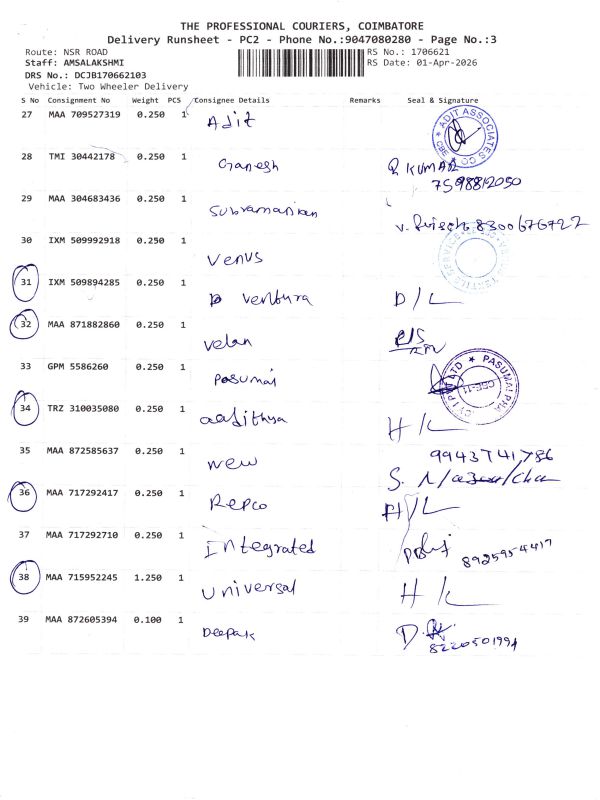 THE PROFESSIONAL COURIERS, COIMBATORE
Delivery Runsheet - PC2 - Phone No.:9047080280 - Page No.:3
Route: NSR ROAD
RS No.: 1706621
Staff: AMSALAKSHMI
RS Date: 01-Apr-2026
DRS No.: DCJB170662103
Vehicle: Two Wheeler Delivery
S No Consignment No Weight PCS Consignee Details Remarks Seal & Signature
27 MAA 709527319 0.250 1 Adit ADIT ASSOCIATES CBE
28 TMI 30442178 0.250 1 Ganesh R KUMAR
7598812050
29 MAA 304683436 0.250 1 Subramanian V. 8300676722
30 IXM 509992918 0.250 1 Venus
31 IXM 509894285 0.250 1 Ventura D/L
32 MAA 871882860 0.250 1 Velan
33 GPM 5586260 0.250 1 Pasumai
34 TRZ 310035080 0.250 1 aadithya H/L
35 MAA 872585637 0.250 1 new 9943741786
S.
36 MAA 717292417 0.250 1 Repco H/L
37 MAA 717292710 0.250 1 Integrated 8925954417
38 MAA 715952245 1.250 1 Universal H/L
39 MAA 872605394 0.100 1 Deepak D.
8220501994